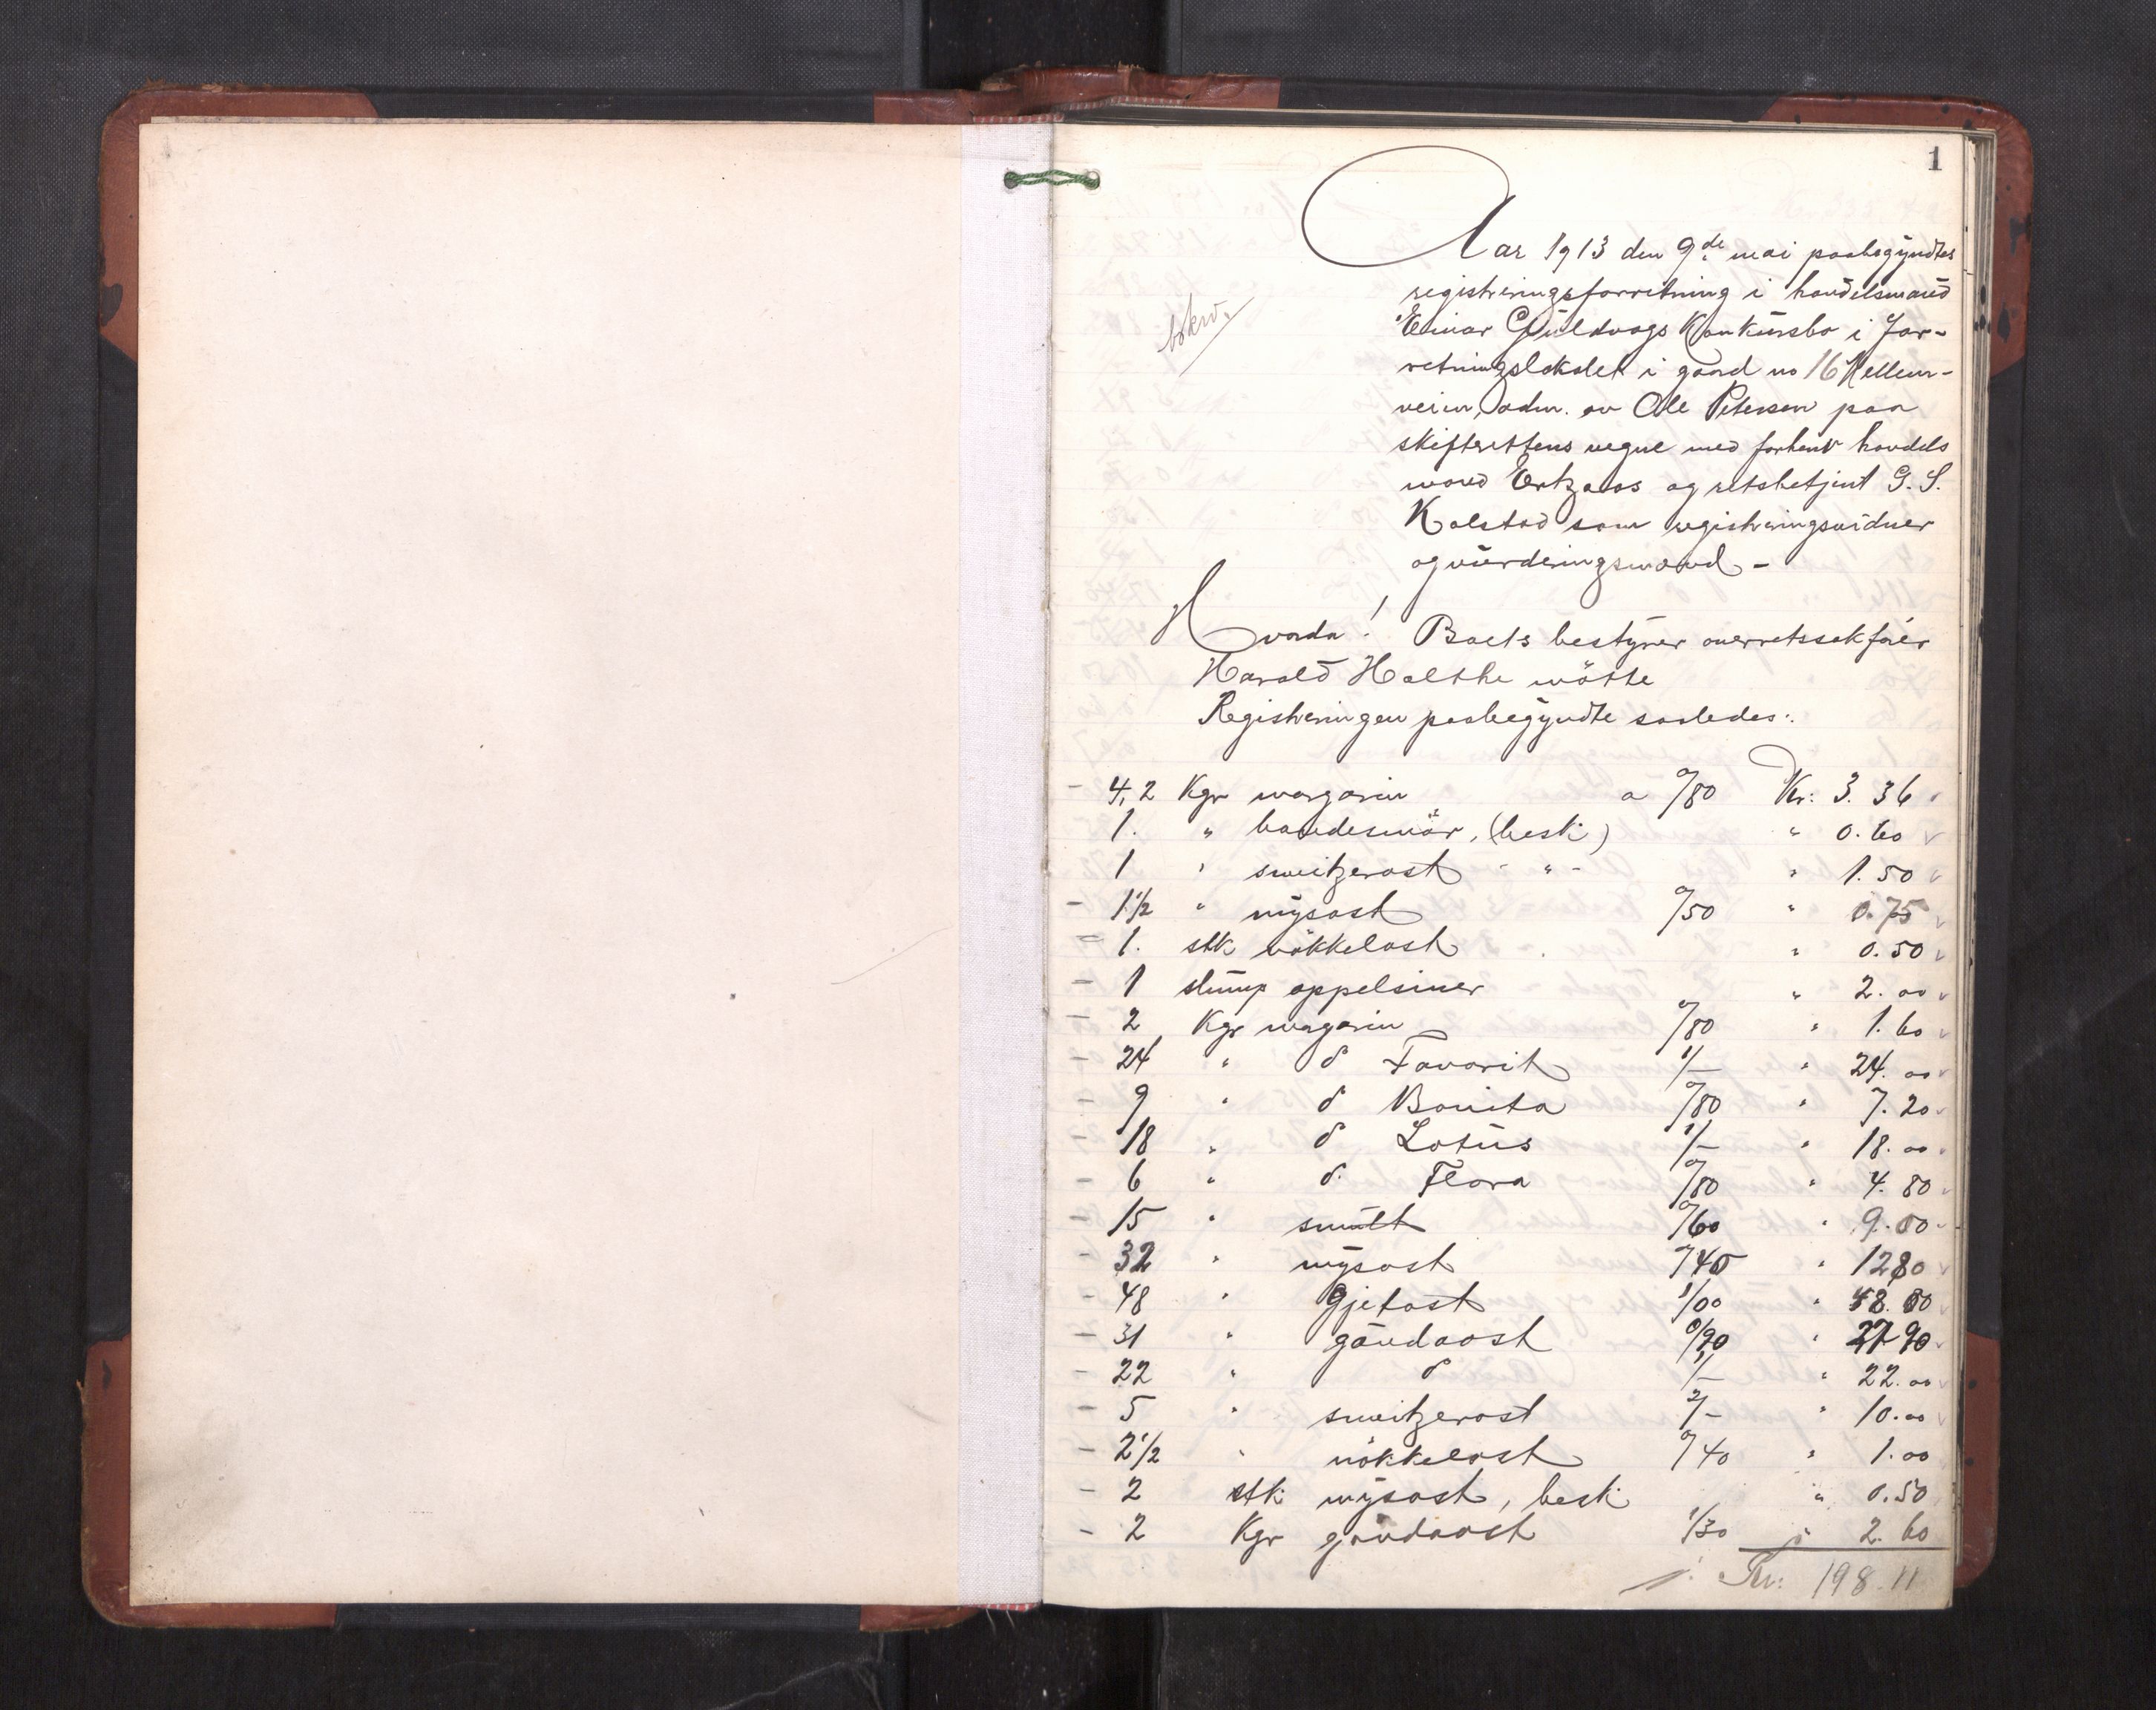 1
Aar 1913 den 9de mai paabegyndtes
registreringsforretning i handelsmand
bokw.
Einar Guldvogs Konkursbo i For-
retningslokalet i gaard no 16 Mellem-
veien, adm. av Ole Petersen paa
skifterettens vegne med forhenv handels
mand Ertzaas og retsbetjent G. S.
Kolstad som registreringsvidner
og vurderingsmænd -
Hvorda! Boets bestyrer overretssakfører
Harald Holthe mötte
Registreringen paabegyndte saaledes:
- 4,2 Kgr margarin a 0/80 Kr: 3.36
1. " bondesmör, (besk:) " 0.60
1 " sweitzerost - " - " 1.50
- 1 1/2 " mysost 0/50 " 0.75
- 1. stk nökkelost " 0.50
- 1 slump appelsiner " 2.00
- 2 Kgr margarin 0/80 " 1.60
- 24 " do Favorit 1/- " 24.00
- 9 " do Bonita 0/80 " 7.20
- 18 " do Lotus 1/- " 18.00
- 6 " do Flora 0/80 " 4.80
- 15 " smult 0/60 " 9.00
- 32 " mysost 0/40 " 12.80
- 48 " Gjetost 1/00 " 48.00
- 31 " gaudaost 0/90 " 27.90
- 22 " do 1/- " 22.00
- 5 " sweitzerost 2/- " 10.00
- 2 1/2 " nökkelost 0/40 " 1.00
- 2 stk mysost, besk: " 0.50
- 2 Kgr gaudaost 1/30 " 2.60
Kr: 198.11